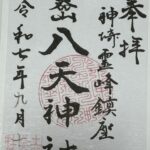 奉拝
神埼霊峰鎮座
八天神社
令和七年九月